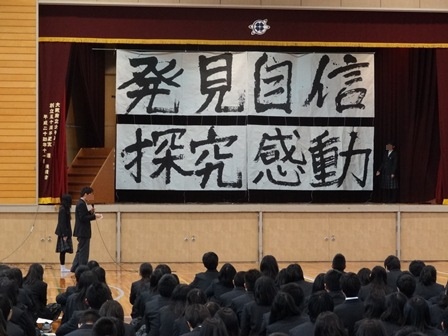 発見自信
探究感動